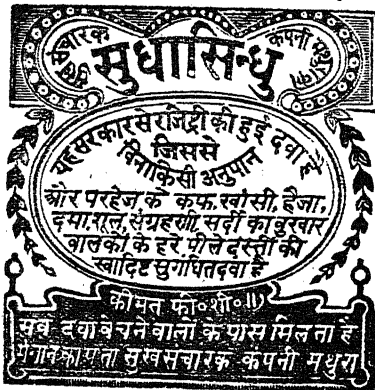 सुख संचारक कंपनी मथुरा का
सुधासिन्धु
यह सरकार से रजिष्ट्री की हुई दवा है
जिससे
बिना किसी अनुपान
और परहेज के कफ, खांसी, हैजा,
दमा, शूल, संग्रहणी, सर्दी का बुखार
बालकों के हरे पीले दस्तों की
स्वादिष्ट सुगंधित दवा है
कीमत फी० शी० ॥)
सब दवा बेचने वालों के पास मिलता है
मंगाने का पता सुख संचारक कंपनी मथुरा